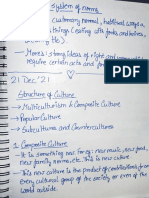 system of norms
customary normal, traditional ways
things (eating with forks and knives,
- Mores: strong ideas of right and wrong
require certain acts and
21 Dec '21
Structure of Culture
- Multiculturalism & Composite Culture
- Popular Culture
- Subcultures and Countercultures
1. Composite Culture
- It is something new. for eg: new music, new food,
new family norms, etc. This is new culture
- This new culture is the product of contributions from
every cultural group of the society or even of the
world outside.